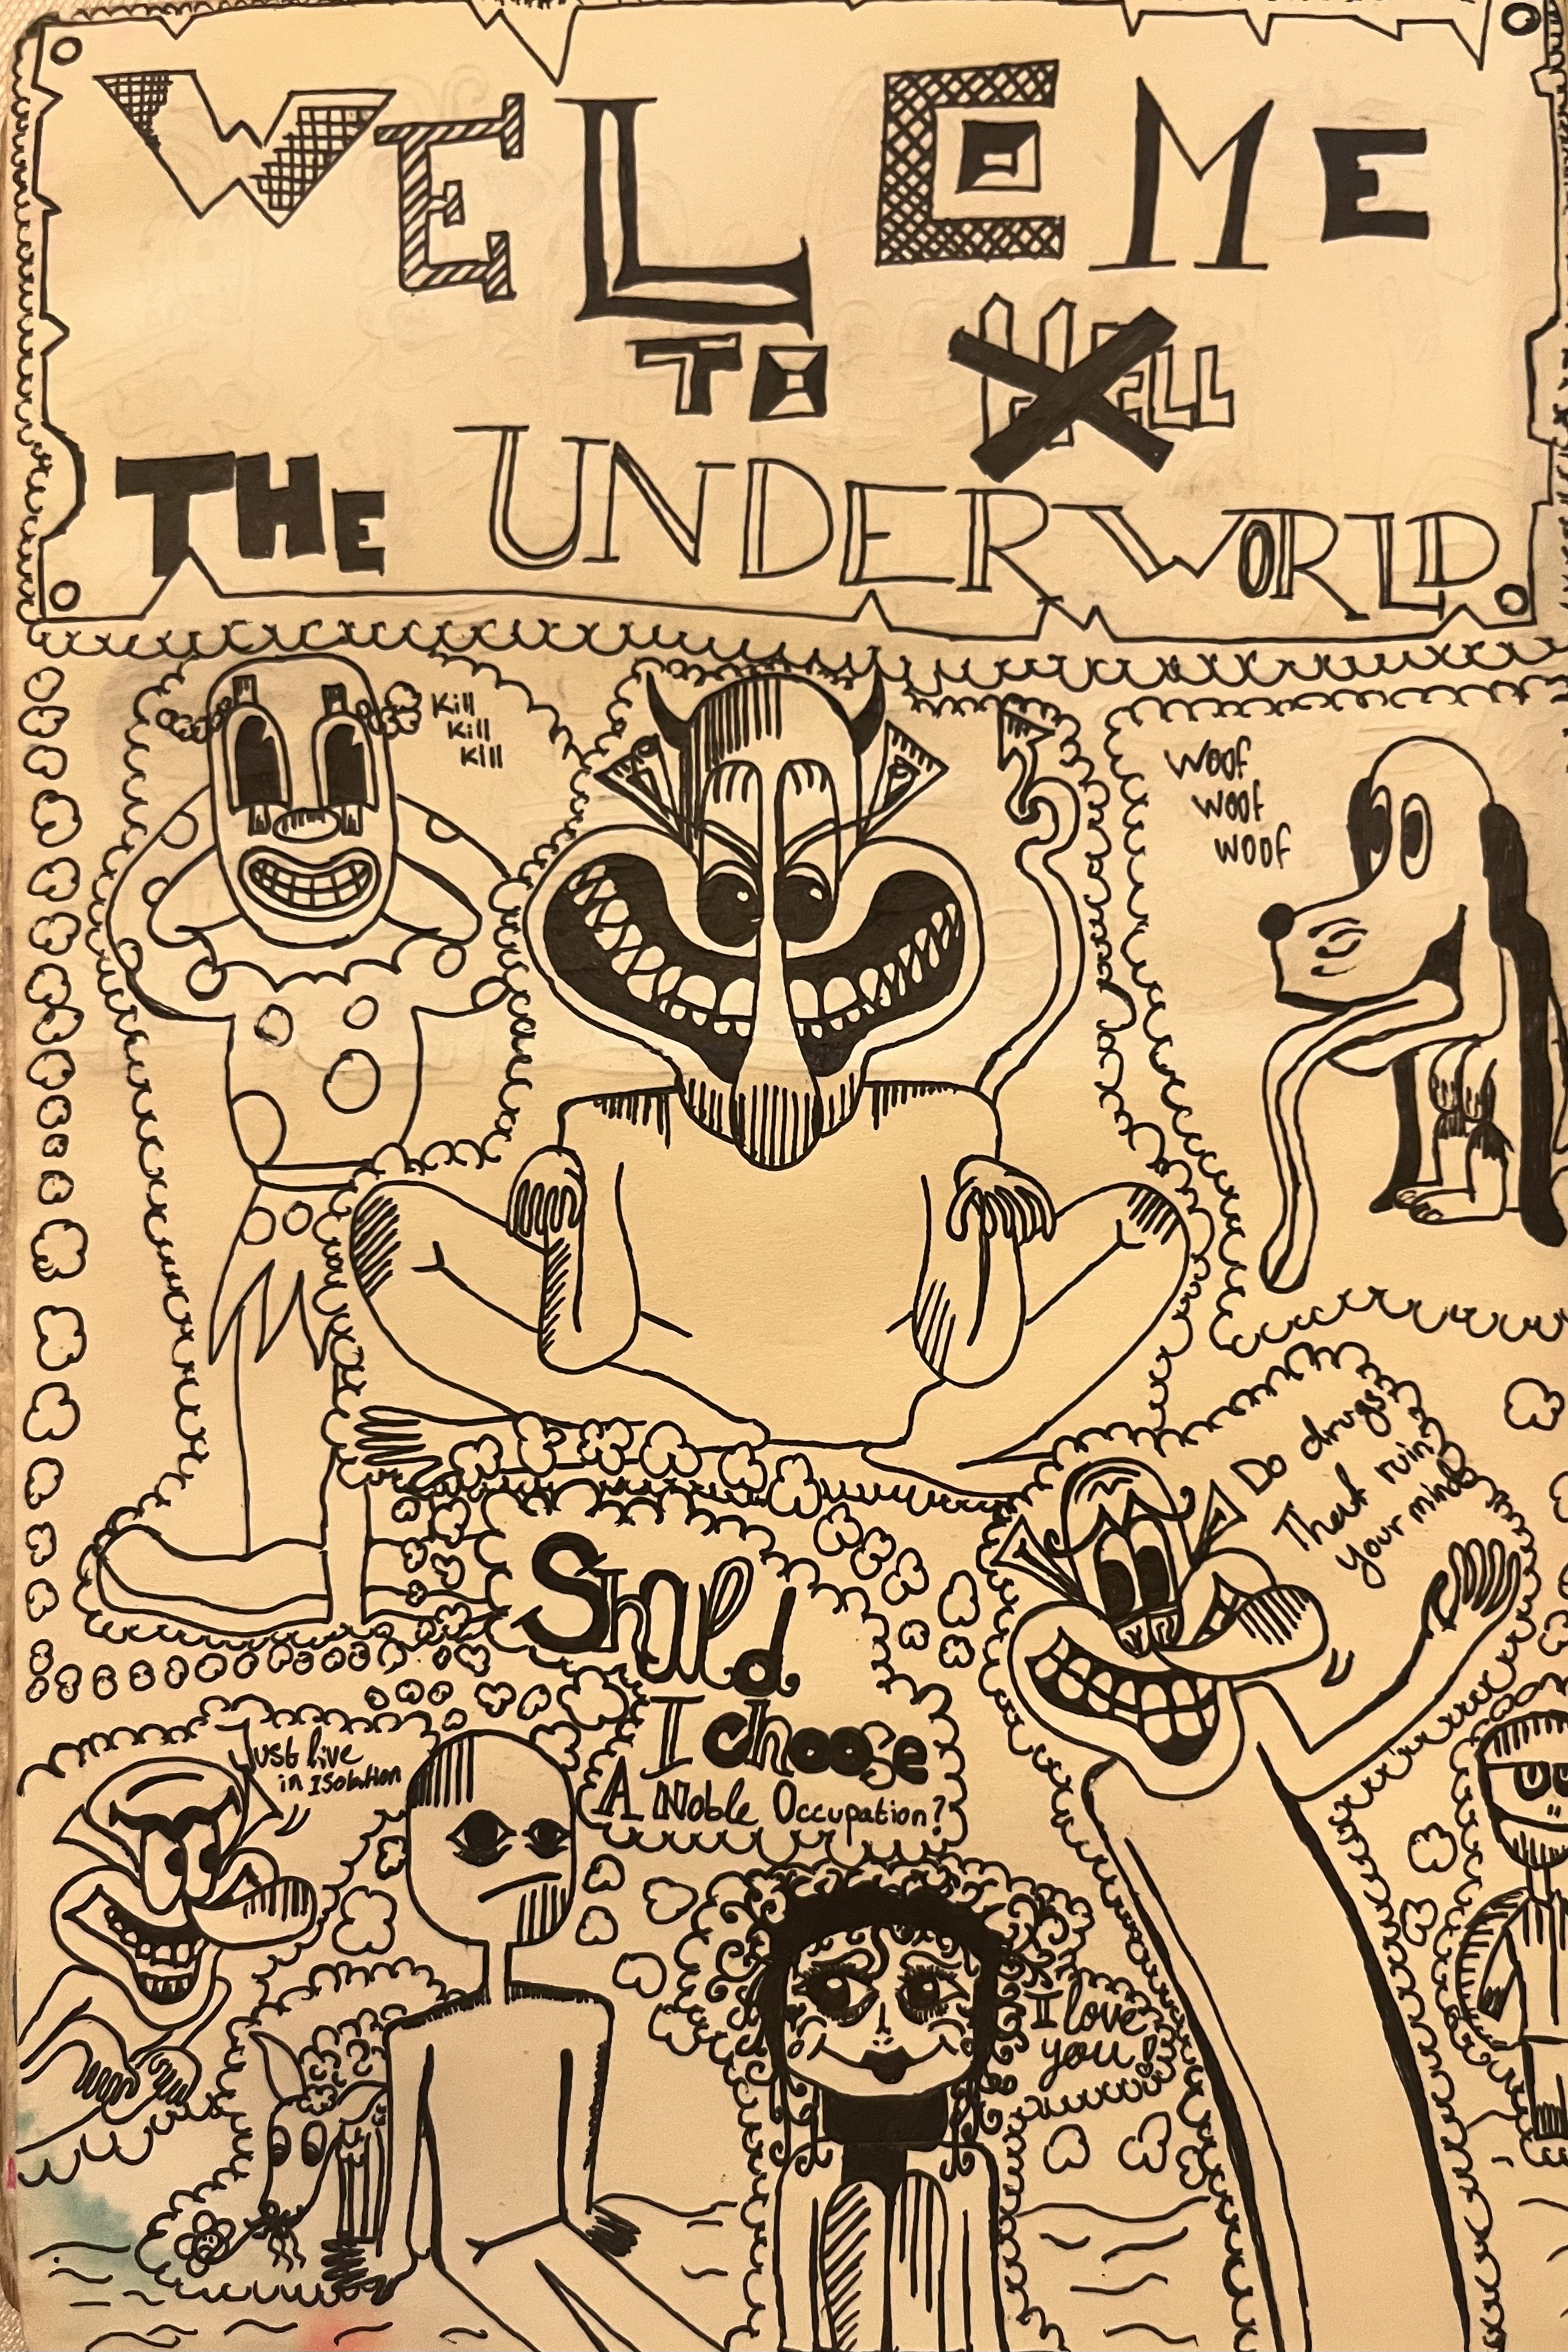 WELCOME
TO HELL
THE UNDERWORLD.
Kill
Kill
Kill
Woof
woof
woof
Do drugs
That ruin
your mind
Should
I choose
A Noble Occupation?
Just live
in Isolation
I love
you!